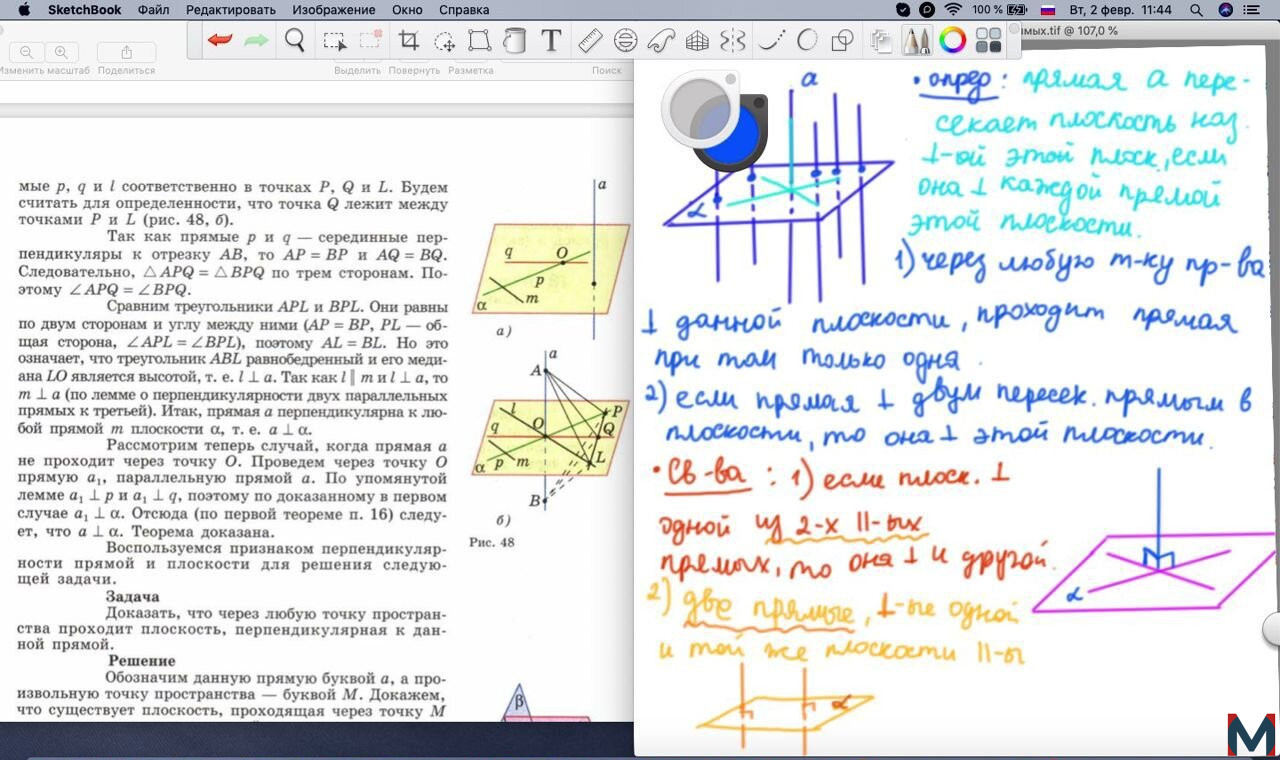 SketchBook Файл Редактировать Изображение Окно Справка 100 % Вт, 2 февр. 11:44
имых.tif @ 107,0 %
Изменить масштаб Поделиться Выделить Повернуть Разметка Поиск
мые p, q и l соответственно в точках P, Q и L. Будем
считать для определенности, что точка Q лежит между
точками P и L (рис. 48, б).
Так как прямые p и q — серединные пер-
пендикуляры к отрезку AB, то AP = BP и AQ = BQ.
Следовательно, △APQ = △BPQ по трем сторонам. По-
этому ∠APQ = ∠BPQ.
Сравним треугольники APL и BPL. Они равны
по двум сторонам и углу между ними (AP = BP, PL — об-
щая сторона, ∠APL = ∠BPL), поэтому AL = BL. Но это
означает, что треугольник ABL равнобедренный и его меди-
ана LO является высотой, т. е. l ⊥ a. Так как l ∥ m и l ⊥ a, то
m ⊥ a (по лемме о перпендикулярности двух параллельных
прямых к третьей). Итак, прямая a перпендикулярна к лю-
бой прямой m плоскости α, т. е. a ⊥ α.
Рассмотрим теперь случай, когда прямая a
не проходит через точку O. Проведем через точку O
прямую a₁, параллельную прямой a. По упомянутой
лемме a₁ ⊥ p и a₁ ⊥ q, поэтому по доказанному в первом
случае a₁ ⊥ α. Отсюда (по первой теореме п. 16) следу-
ет, что a ⊥ α. Теорема доказана.
Воспользуемся признаком перпендикуляр-
ности прямой и плоскости для решения следую-
щей задачи.
Задача
Доказать, что через любую точку простран-
ства проходит плоскость, перпендикулярная к дан-
ной прямой.
Решение
Обозначим данную прямую буквой a, а про-
извольную точку пространства — буквой M. Докажем,
что существует плоскость, проходящая через точку M
a
q O
p
m
α
а)
a
A
l P
q O Q
α p m L
B
б)
Рис. 48
β
a
α
• опред: прямая a пере-
секает плоскость наз.
⊥-ой этой плоск., если
она ⊥ каждой прямой
этой плоскости.
1) через любую т-ку пр-ва
⊥ данной плоскости, проходит прямая
при том только одна.
2) если прямая ⊥ двум пересек. прямым в
плоскости, то она ⊥ этой плоскости.
• Св-ва: 1) если плоск. ⊥
одной из 2-х ||-ых
прямых, то она ⊥ и другой.
2) две прямые, ⊥-ые одной
и той же плоскости ||-ы
α
α
M